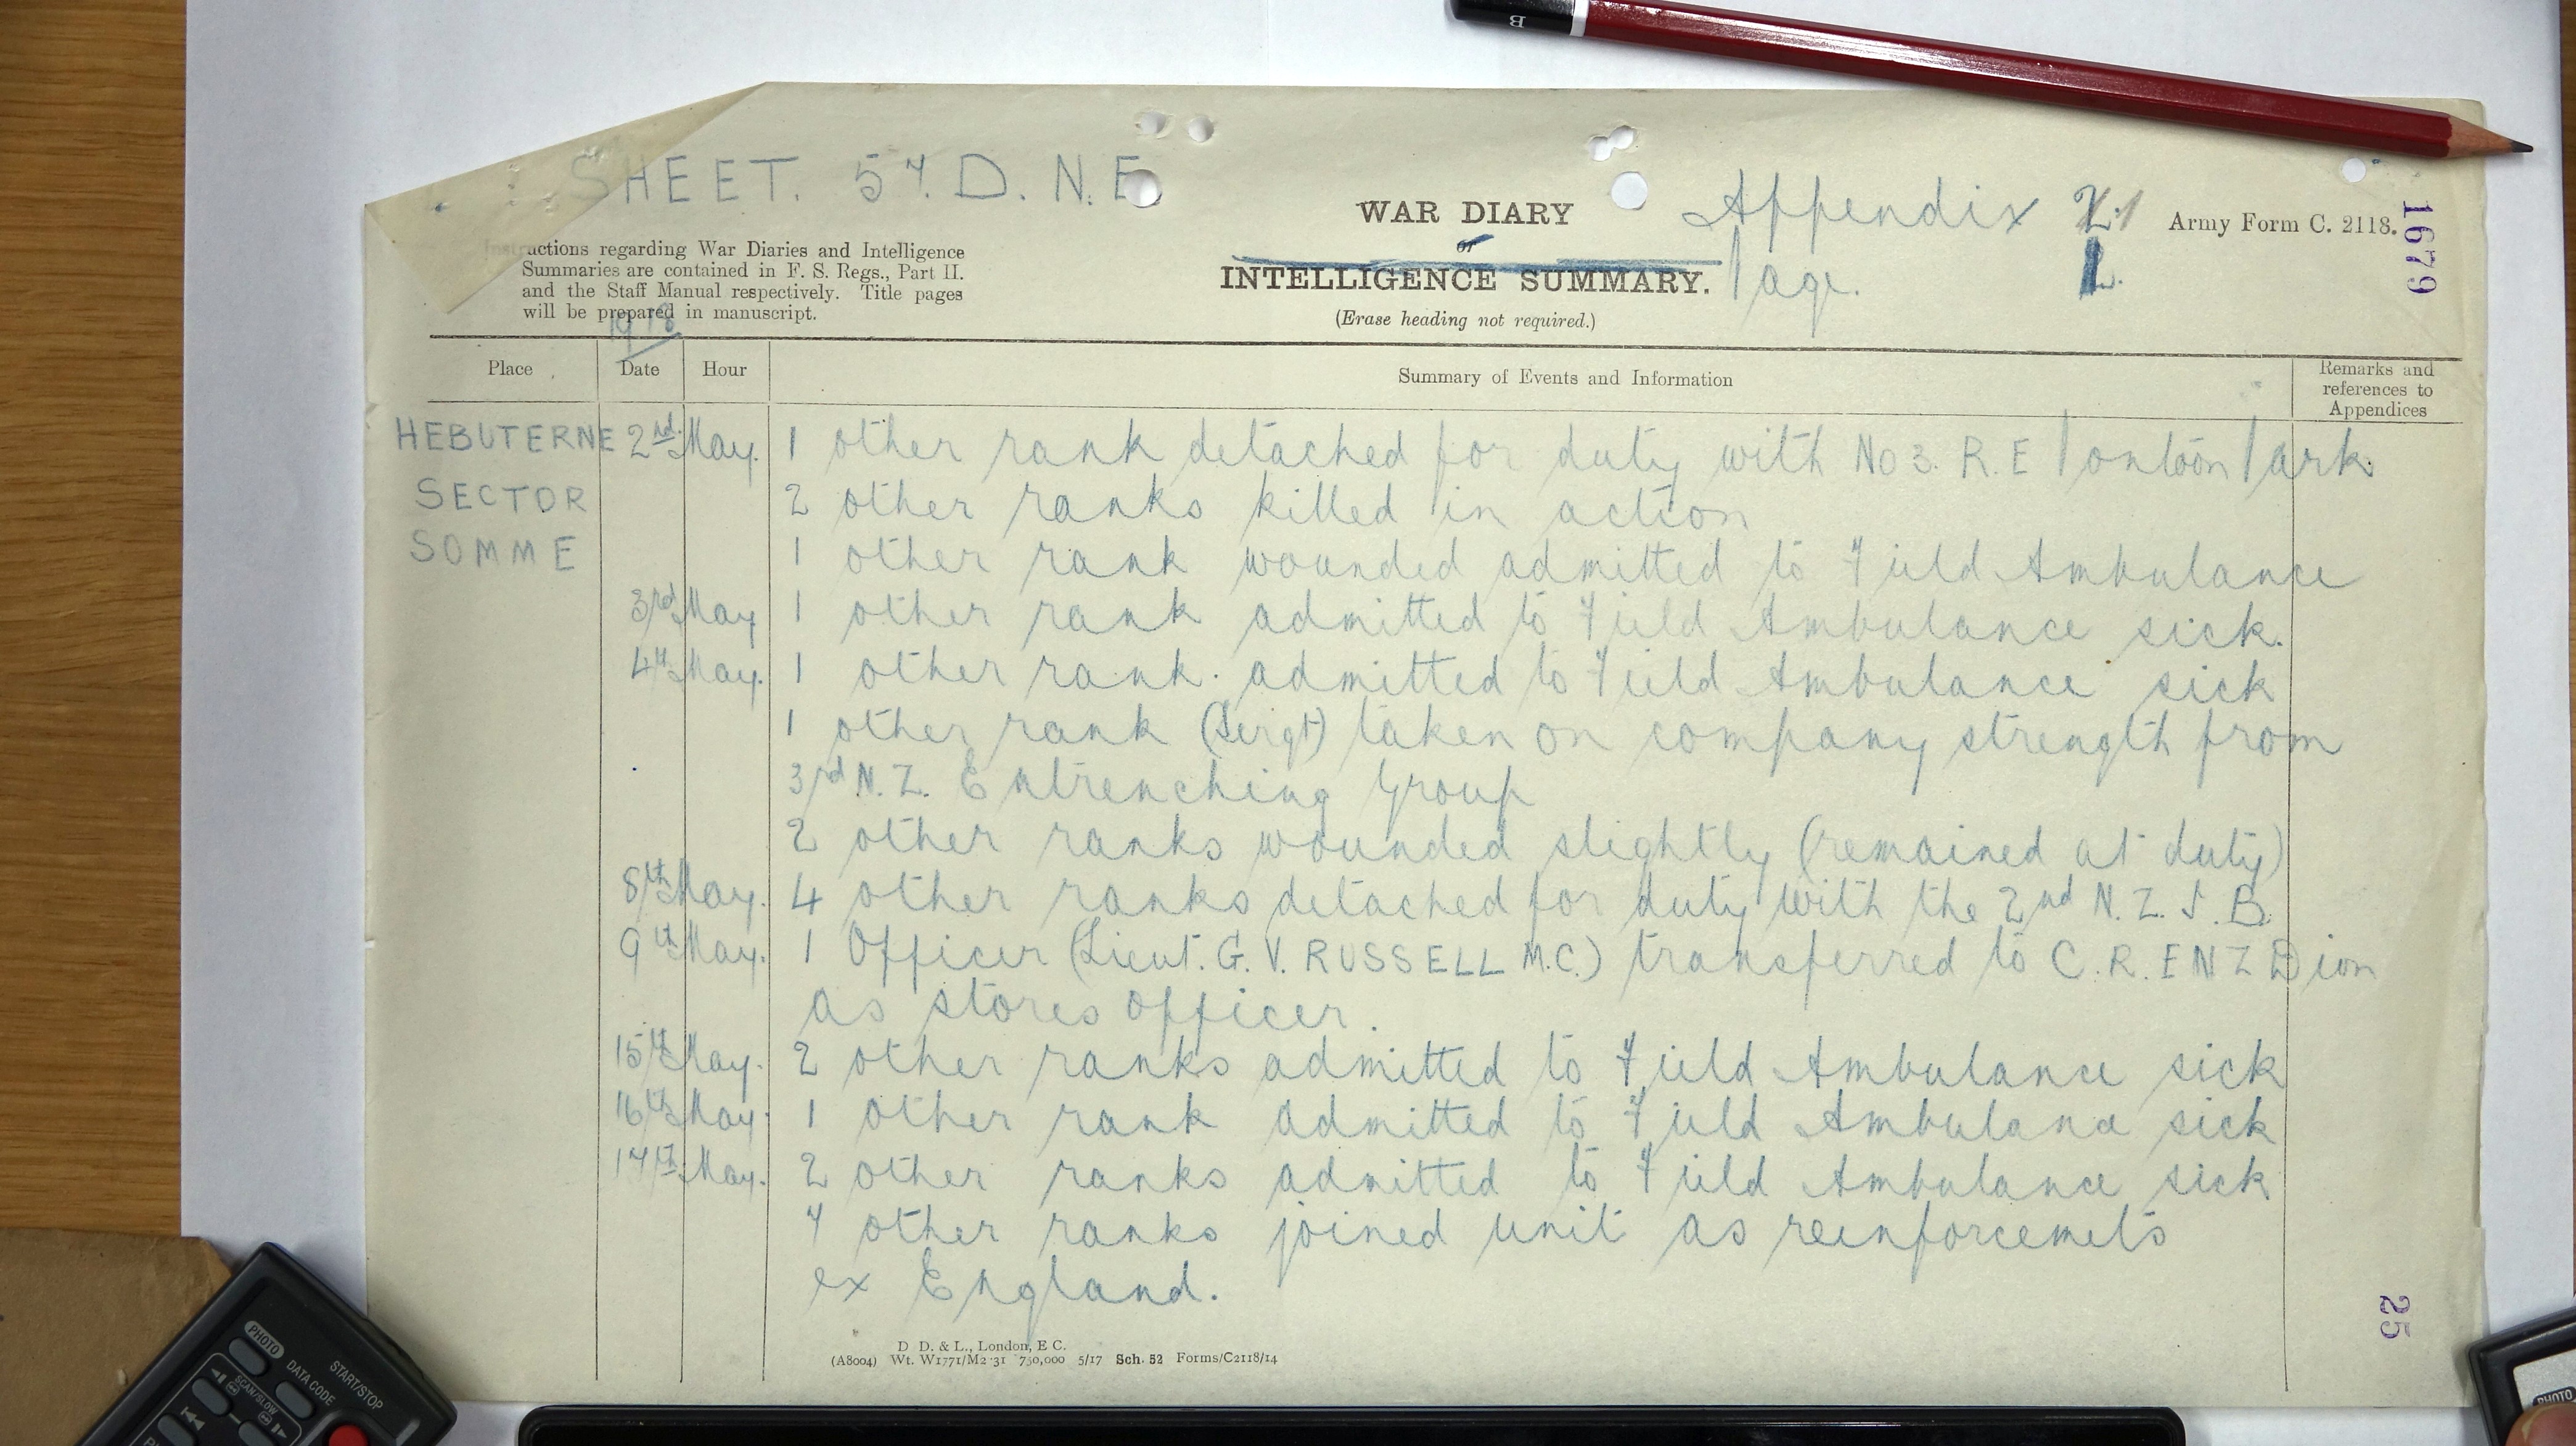 SHEET. 57. D. N. E
WAR DIARY
or
INTELLIGENCE SUMMARY.
(Erase heading not required.)
Appendix
Page. 1.
Army Form C. 2118.
1679
Instructions regarding War Diaries and Intelligence
Summaries are contained in F. S. Regs., Part II.
and the Staff Manual respectively. Title pages
will be prepared in manuscript.
1918
Place Date Hour Summary of Events and Information Remarks and references to Appendices
HEBUTERNE 2nd May. 1 other rank detached for duty with No 3. R. E Pontoon Park.
SECTOR 2 other ranks killed in action
SOMME 1 other rank wounded admitted to Field Ambulance
3rd May 1 other rank admitted to Field Ambulance sick.
4th May. 1 other rank. admitted to Field Ambulance sick
1 other rank (Sergt) taken on company strength from
3rd N. Z. Entrenching Group
2 other ranks wounded slightly (remained at duty)
8th May. 4 other ranks detached for duty with the 2nd N. Z. F. B.
9th May. 1 Officer (Lieut. G. V. RUSSELL M.C.) transferred to C. R. E N Z Dion
as stores officer.
15th May. 2 other ranks admitted to Field Ambulance sick
16th May. 1 other rank admitted to Field Ambulance sick
17th May. 2 other ranks admitted to Field Ambulance sick
7 other ranks joined unit as reinforcemets
ex England.
D D. & L., London, E C.
(A8004) Wt. W1771/M2 31 750,000 5/17 Sch. 52 Forms/C2118/14
25
B
PHOTO
DATA CODE
START/STOP
SCAN/SLOW
PHOTO